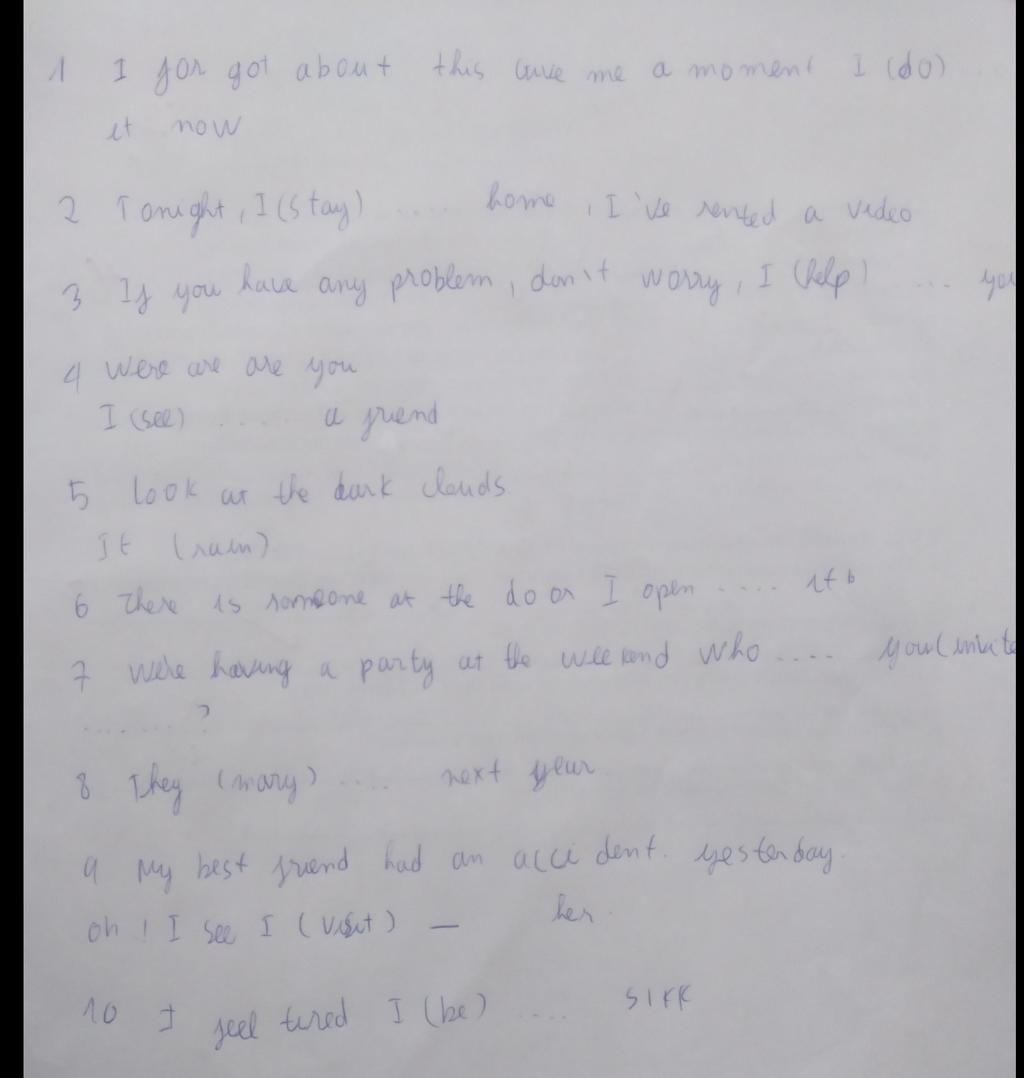 1 I for got about this Give me a moment I (do)
it now
2 Tonight, I (stay) .... home, I've rented a video
3 If you have any problem, don't worry, I (help) ... you
4 Were are are you
I (see) ..... a friend
5 Look at the dark clouds.
It (rain)
6 There is someone at the door I open ..... it
7 We're having a party at the weekend who .... you (invite
........ ?
8 They (mary) .... next year.
9 My best friend had an accident. yesterday.
oh ! I see I (visit) — her.
10 I feel tired I (be) .... sikk